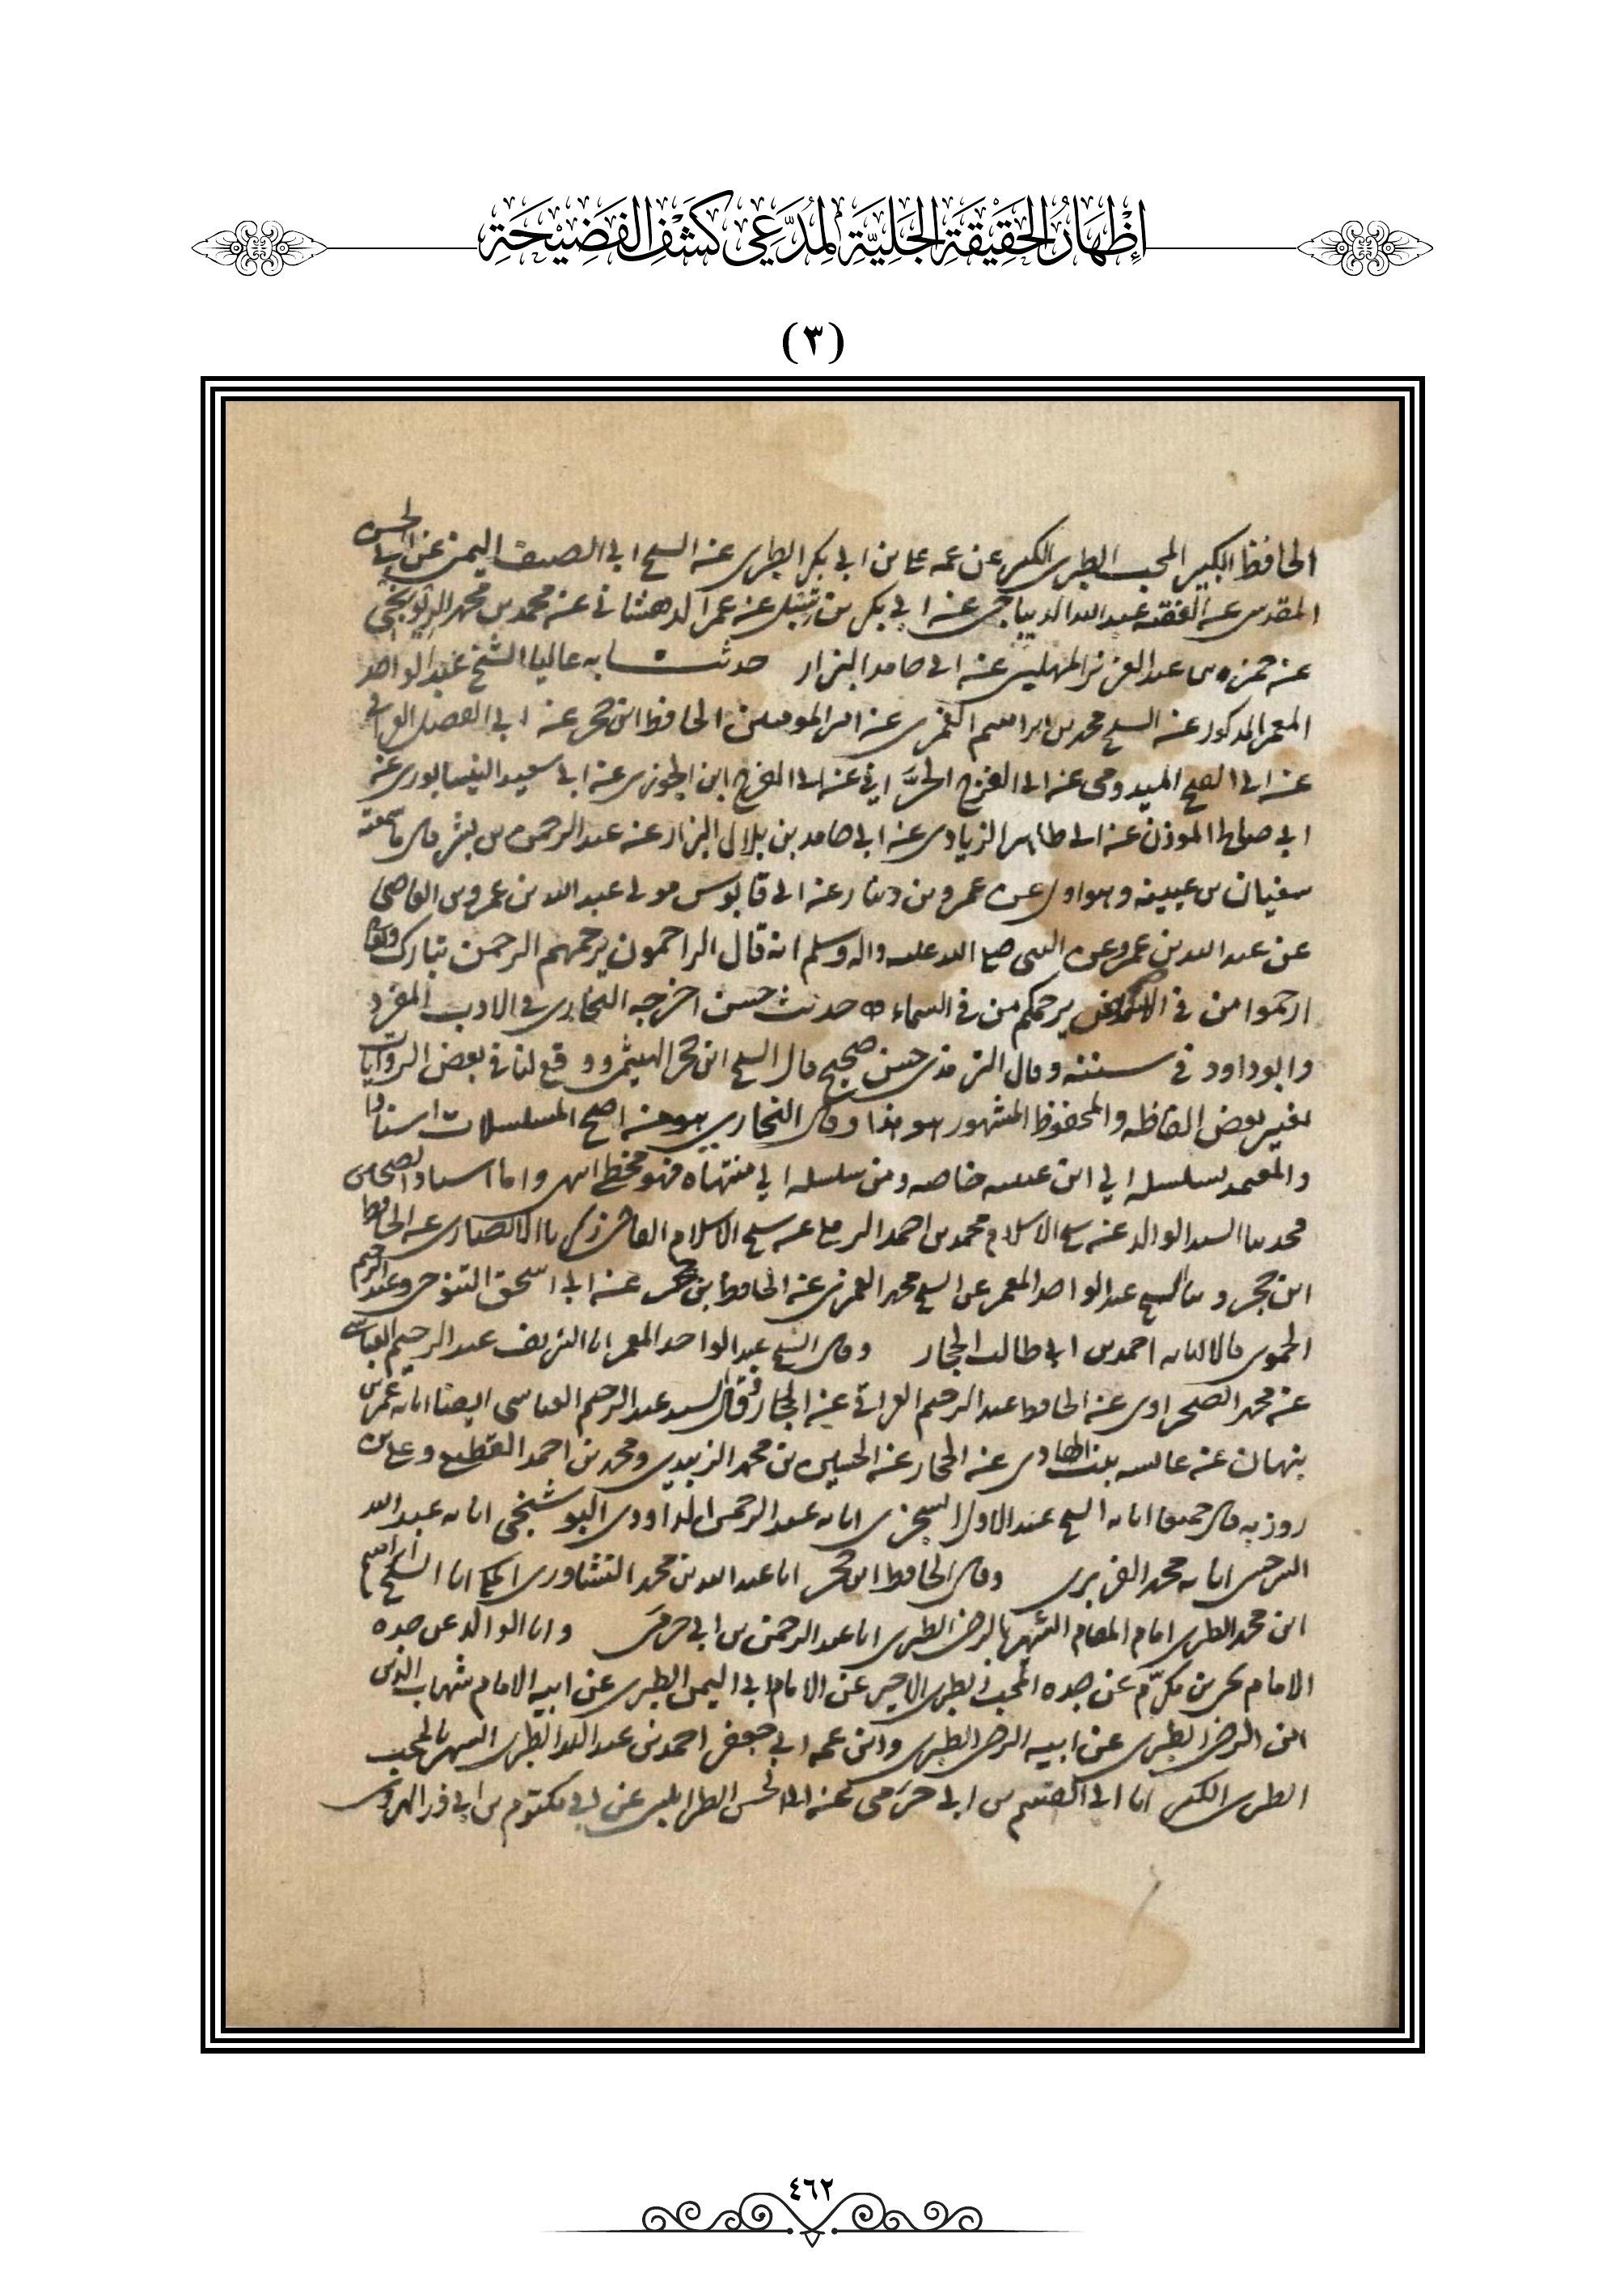 إظهار الحقيقة الجلية لمدعي كشف الفضيحة
(٣)
الحافظ الكبير المحب الطبري الكبير عن عمه علي بن ابي بكر الطبري عنه الشيخ ابي الصيف اليمن عن ابي الحسن
المقدسي عنه الفقيه عبد الله الديباجي عنه ابي بكر بن عنه عمر الدهستاني عنه محمد بن محمد
عنه حمزه بن عبد العزيز المهلبي عنه ابي حامد البزار حدثنا به عاليا الشيخ عبد الواحد
المعمر المذكور عنه الشيخ محمد بن ابراهيم الغمري عنه امير المومنين الحافظ ابن حجر عنه ابي الفضل العراقي
عنه ابي الفتح الميدومي عنه ابي الفرج الحرَّاني عنه ابي الفرج ابن الجوزي عنه ابي سعيد النيسابوري عنه
ابي صالح الموذن عنه ابي طاهر الزيادي عنه ابي حامد بن بلال البزار عنه عبد الرحمن بن بشر قال سمعته
سفيان بن عيينه وهو اول عن عمرو بن دينار عنه ابي قابوس مولى عبد الله بن عمرو بن العاصي
عن عبد الله بن عمرو عن النبي صلى الله عليه واله وسلم انه قال الراحمون يرحمهم الرحمن تبارك وتعالى
ارحموا من في الارض يرحمكم من في السماء حديث حسن اخرجه البخاري في الادب المفرد
وابو داود في سننه وقال الترمذي حسن صحيح قال الشيخ ابن حجر الهيثمي ووقع لنا في بعض الروايات
بغير بعض الفاظه والمحفوظ المشهور هو هذا وقال البخاري هو اصح المسلسلات اسنادا
والمعتمد تسلسله الى ابن عيينه خاصه ومن سلسله الى منتهاه فهو مخط انتهى واما اسناد
السيد الوالد عنه شيخ الاسلام محمد بن احمد الرملي عنه شيخ الاسلام القاضي زكريا الانصاري عنه الحافظ
ابن حجر الشيخ عبد الواحد المعمر عن الشيخ محمد الغمري عنه الحافظ ابن حجر عنه ابي اسحق التنوخي وعبد الرحيم
الحموي قالا انا به احمد بن ابي طالب الحجار وقال الشيخ عبد الواحد المعمر انا الشريف عبد الرحيم العباسي
عنه محمد الصحراوي عنه الحافظ عبد الرحيم العراقي عنه الحجار وقال السيد عبد الرحيم العباسي ايضا انا به عمر بن
بنهان عنه عائشه بنت الهادي عنه الحجار عنه الحسين بن محمد الزبيدي ومحمد بن احمد القطيعي وعلي بن
روزبه قال جميعا انا به الشيخ عبد الاول السجزي انا به عبد الرحمن الداودي البوشنجي انا به عبد الله
السرخسي انا به محمد الفربري وقال الحافظ ابن حجر انا عبد الله بن محمد النشاوري المكي انا الشيخ ابراهيم
ابن محمد الطبري امام المقام الشهير بالرضي الطبري انا عبد الرحمن بن ابي حرمي وانا الوالد عن جده
الامام يحيى بن مكرّم عن جده المحب الطبري الاخير عن الامام ابي اليمن الطبري عن ابيه الامام شهاب الدين
ابن الرضي الطبري عن ابيه الرضي الطبري وابن عمه ابي جعفر احمد بن عبد الله الطبري الشهير بالمحب
الطبري الكبير انا ابي القسم بن ابي حرمي عنه ابي الحسن الطرابلسي عن ابي مكتوم بن ابي ذر الهروي
٤٦٢